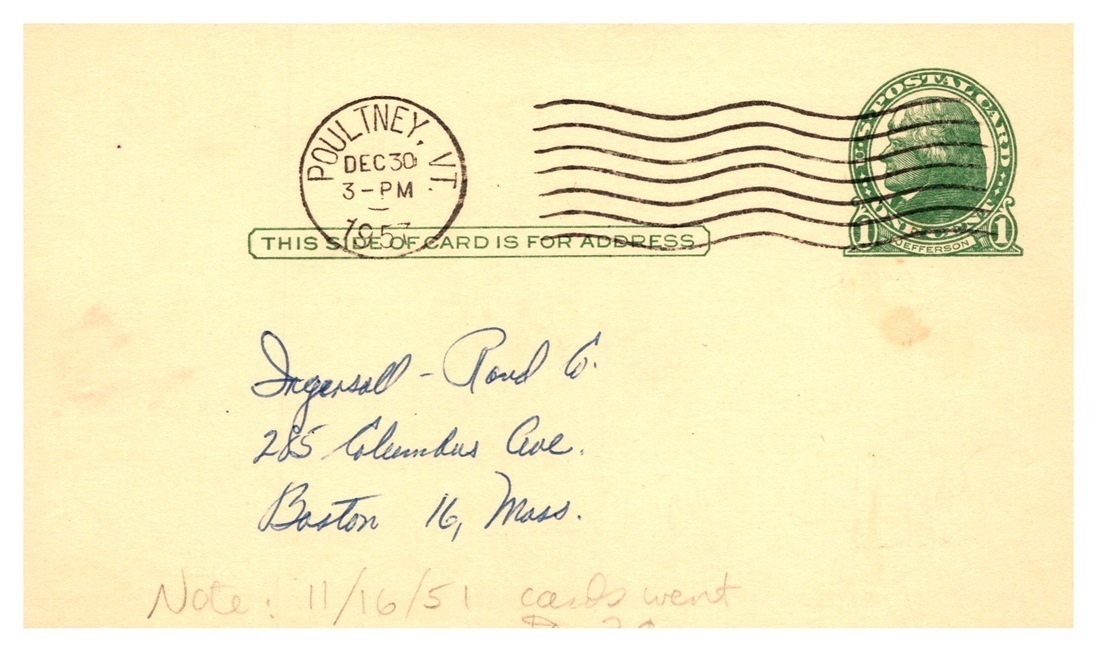 POULTNEY, VT.
DEC 30
3-PM
195
U.S. POSTAL CARD
1 JEFFERSON 1
THIS SIDE OF CARD IS FOR ADDRESS
Ingersoll - Rand Co.
285 Columbus Ave.
Boston 16, Mass.
Note: 11/16/51 cards went